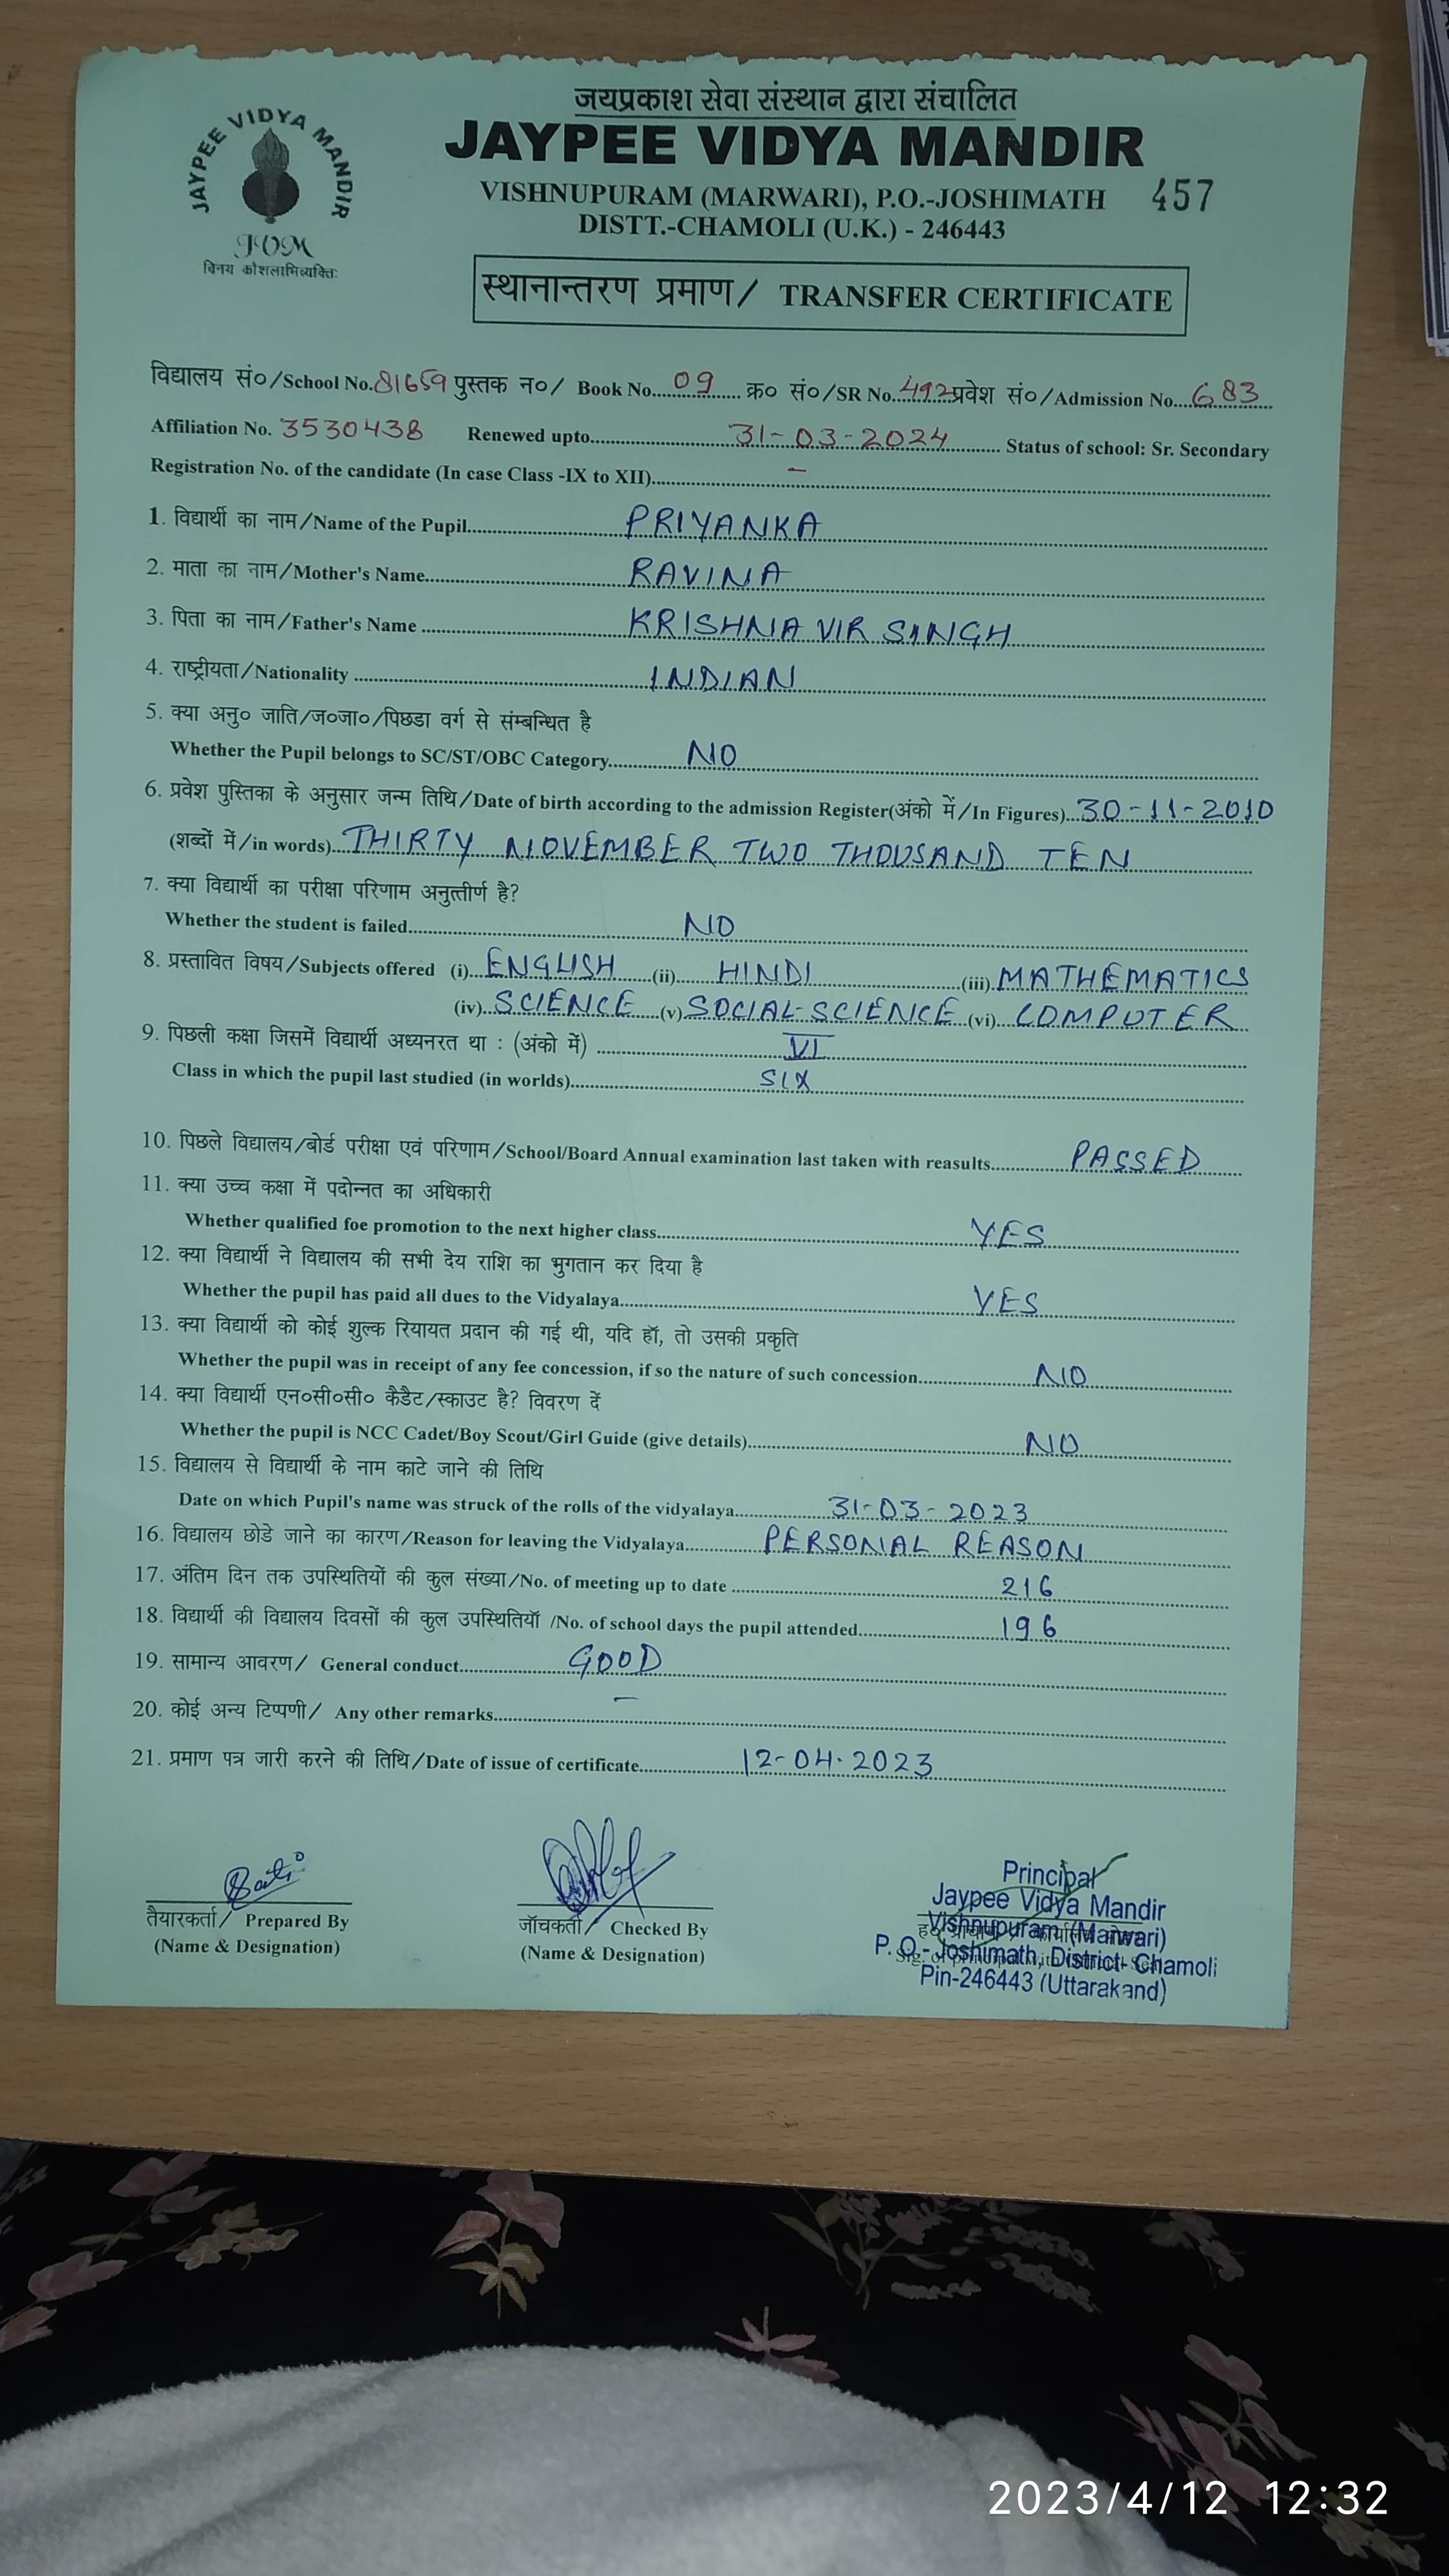 जयप्रकाश सेवा संस्थान द्वारा संचालित
JAYPEE VIDYA MANDIR
JAYPEE VIDYA MANDIR
VISHNUPURAM (MARWARI), P.O.-JOSHIMATH 457
DISTT.-CHAMOLI (U.K.) - 246443
JVM
विनय कौशलाभिव्यक्तिः
स्थानान्तरण प्रमाण/ TRANSFER CERTIFICATE
विद्यालय सं०/School No.81659 पुस्तक न०/ Book No....09.... क्र० सं०/SR No.492 प्रवेश सं०/Admission No....683
Affiliation No. 3530438 Renewed upto....31-03-2024.... Status of school: Sr. Secondary
Registration No. of the candidate (In case Class -IX to XII)....–....
1. विद्यार्थी का नाम/Name of the Pupil....PRIYANKA
2. माता का नाम/Mother's Name....RAVINA
3. पिता का नाम/Father's Name ....KRISHNA VIR SINGH
4. राष्ट्रीयता/Nationality ....INDIAN
5. क्या अनु० जाति/ज०जा०/पिछडा वर्ग से संम्बन्धित है
Whether the Pupil belongs to SC/ST/OBC Category....NO
6. प्रवेश पुस्तिका के अनुसार जन्म तिथि/Date of birth according to the admission Register(अंको में/In Figures)...30-11-2010
(शब्दों में/in words)..THIRTY NOVEMBER TWO THOUSAND TEN
7. क्या विद्यार्थी का परीक्षा परिणाम अनुत्तीर्ण है?
Whether the student is failed....NO
8. प्रस्तावित विषय/Subjects offered (i)..ENGLISH....(ii)....HINDI....(iii).MATHEMATICS
(iv)..SCIENCE...(v)SOCIAL-SCIENCE..(vi)...COMPUTER
9. पिछली कक्षा जिसमें विद्यार्थी अध्यनरत था : (अंको में) ....VI
Class in which the pupil last studied (in worlds)....SIX
10. पिछले विद्यालय/बोर्ड परीक्षा एवं परिणाम/School/Board Annual examination last taken with reasults....PASSED
11. क्या उच्च कक्षा में पदोन्नत का अधिकारी
Whether qualified foe promotion to the next higher class....YES
12. क्या विद्यार्थी ने विद्यालय की सभी देय राशि का भुगतान कर दिया है
Whether the pupil has paid all dues to the Vidyalaya....YES
13. क्या विद्यार्थी को कोई शुल्क रियायत प्रदान की गई थी, यदि हॉ, तो उसकी प्रकृति
Whether the pupil was in receipt of any fee concession, if so the nature of such concession....NO
14. क्या विद्यार्थी एन०सी०सी० कैडैट/स्काउट है? विवरण दें
Whether the pupil is NCC Cadet/Boy Scout/Girl Guide (give details)....NO
15. विद्यालय से विद्यार्थी के नाम काटे जाने की तिथि
Date on which Pupil's name was struck of the rolls of the vidyalaya....31-03-2023
16. विद्यालय छोडे जाने का कारण/Reason for leaving the Vidyalaya....PERSONAL REASON
17. अंतिम दिन तक उपस्थितियों की कुल संख्या/No. of meeting up to date ....216
18. विद्यार्थी की विद्यालय दिवसों की कुल उपस्थितियॉ /No. of school days the pupil attended....196
19. सामान्य आवरण/ General conduct....GOOD
20. कोई अन्य टिप्पणी/ Any other remarks....–
21. प्रमाण पत्र जारी करने की तिथि/Date of issue of certificate....12-04-2023
तैयारकर्ता/ Prepared By
(Name & Designation)
जॉचकर्ता/ Checked By
(Name & Designation)
Principal
Jaypee Vidya Mandir
Vishnupuram (Marwari)
P. O.- Joshimath, District- Chamoli
Pin-246443 (Uttarakand)
2023/4/12 12:32